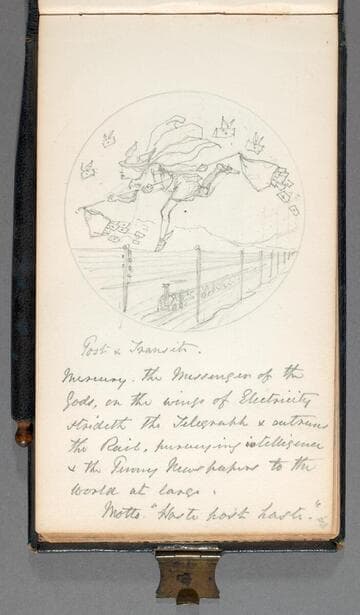 Post & Transit.
Mercury. the Messenger of the
Gods, on the wings of Electricity
strideth the Telegraph & outruns
the Rail, purveying intelligence
& the Penny Newspapers to the
World at large.
Motto. "Haste post haste."